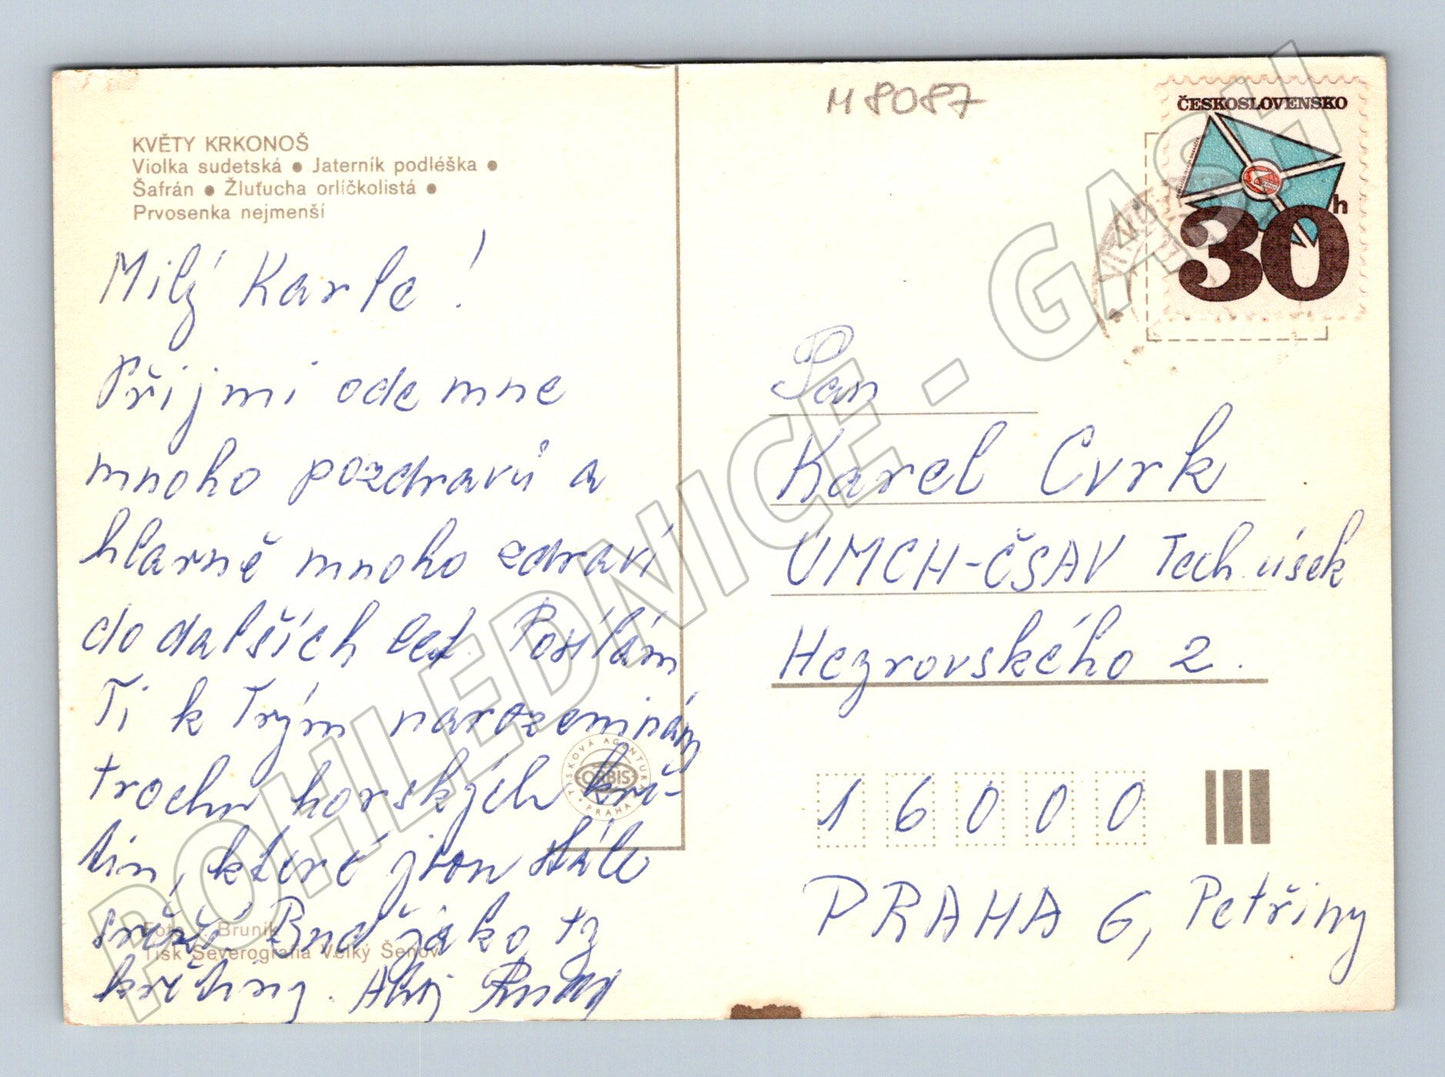 KVĚTY KRKONOŠ
Violka sudetská • Jaterník podléška •
Šafrán • Žluťucha orlíčkolistá •
Prvosenka nejmenší
Milý Karle!
Přijmi ode mne
mnoho pozdravů a
hlavně mnoho zdraví
do dalších let. Posílám
Ti k Tvým narozeninám
trochu horských kvě-
tin, které jsou stále
svěží. Buď jako ty
květiny. Ahoj
Foto Brunik
Tisk Severografia Velký Šenov
TISKOVÁ AGENTURA
ORBIS
PRAHA
M 8087
ČESKOSLOVENSKO
30h
Pan
Karel Cvrk
ÚMCH-ČSAV Tech. úsek
Hezrovského 2.
16000
PRAHA 6, Petřiny
POHLEDNICE - GASH